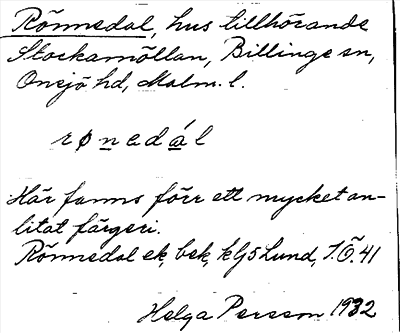 Rönnedal, hus tillhörande
Stockamöllan, Billinge sn,
Onsjö hd, Malm. l.
rønedál
Här fanns förr ett mycket an-
litat färgeri.
Rönnedal ek, bek, klj5 Lund, 1.Ö.41
Helga Persson 1932